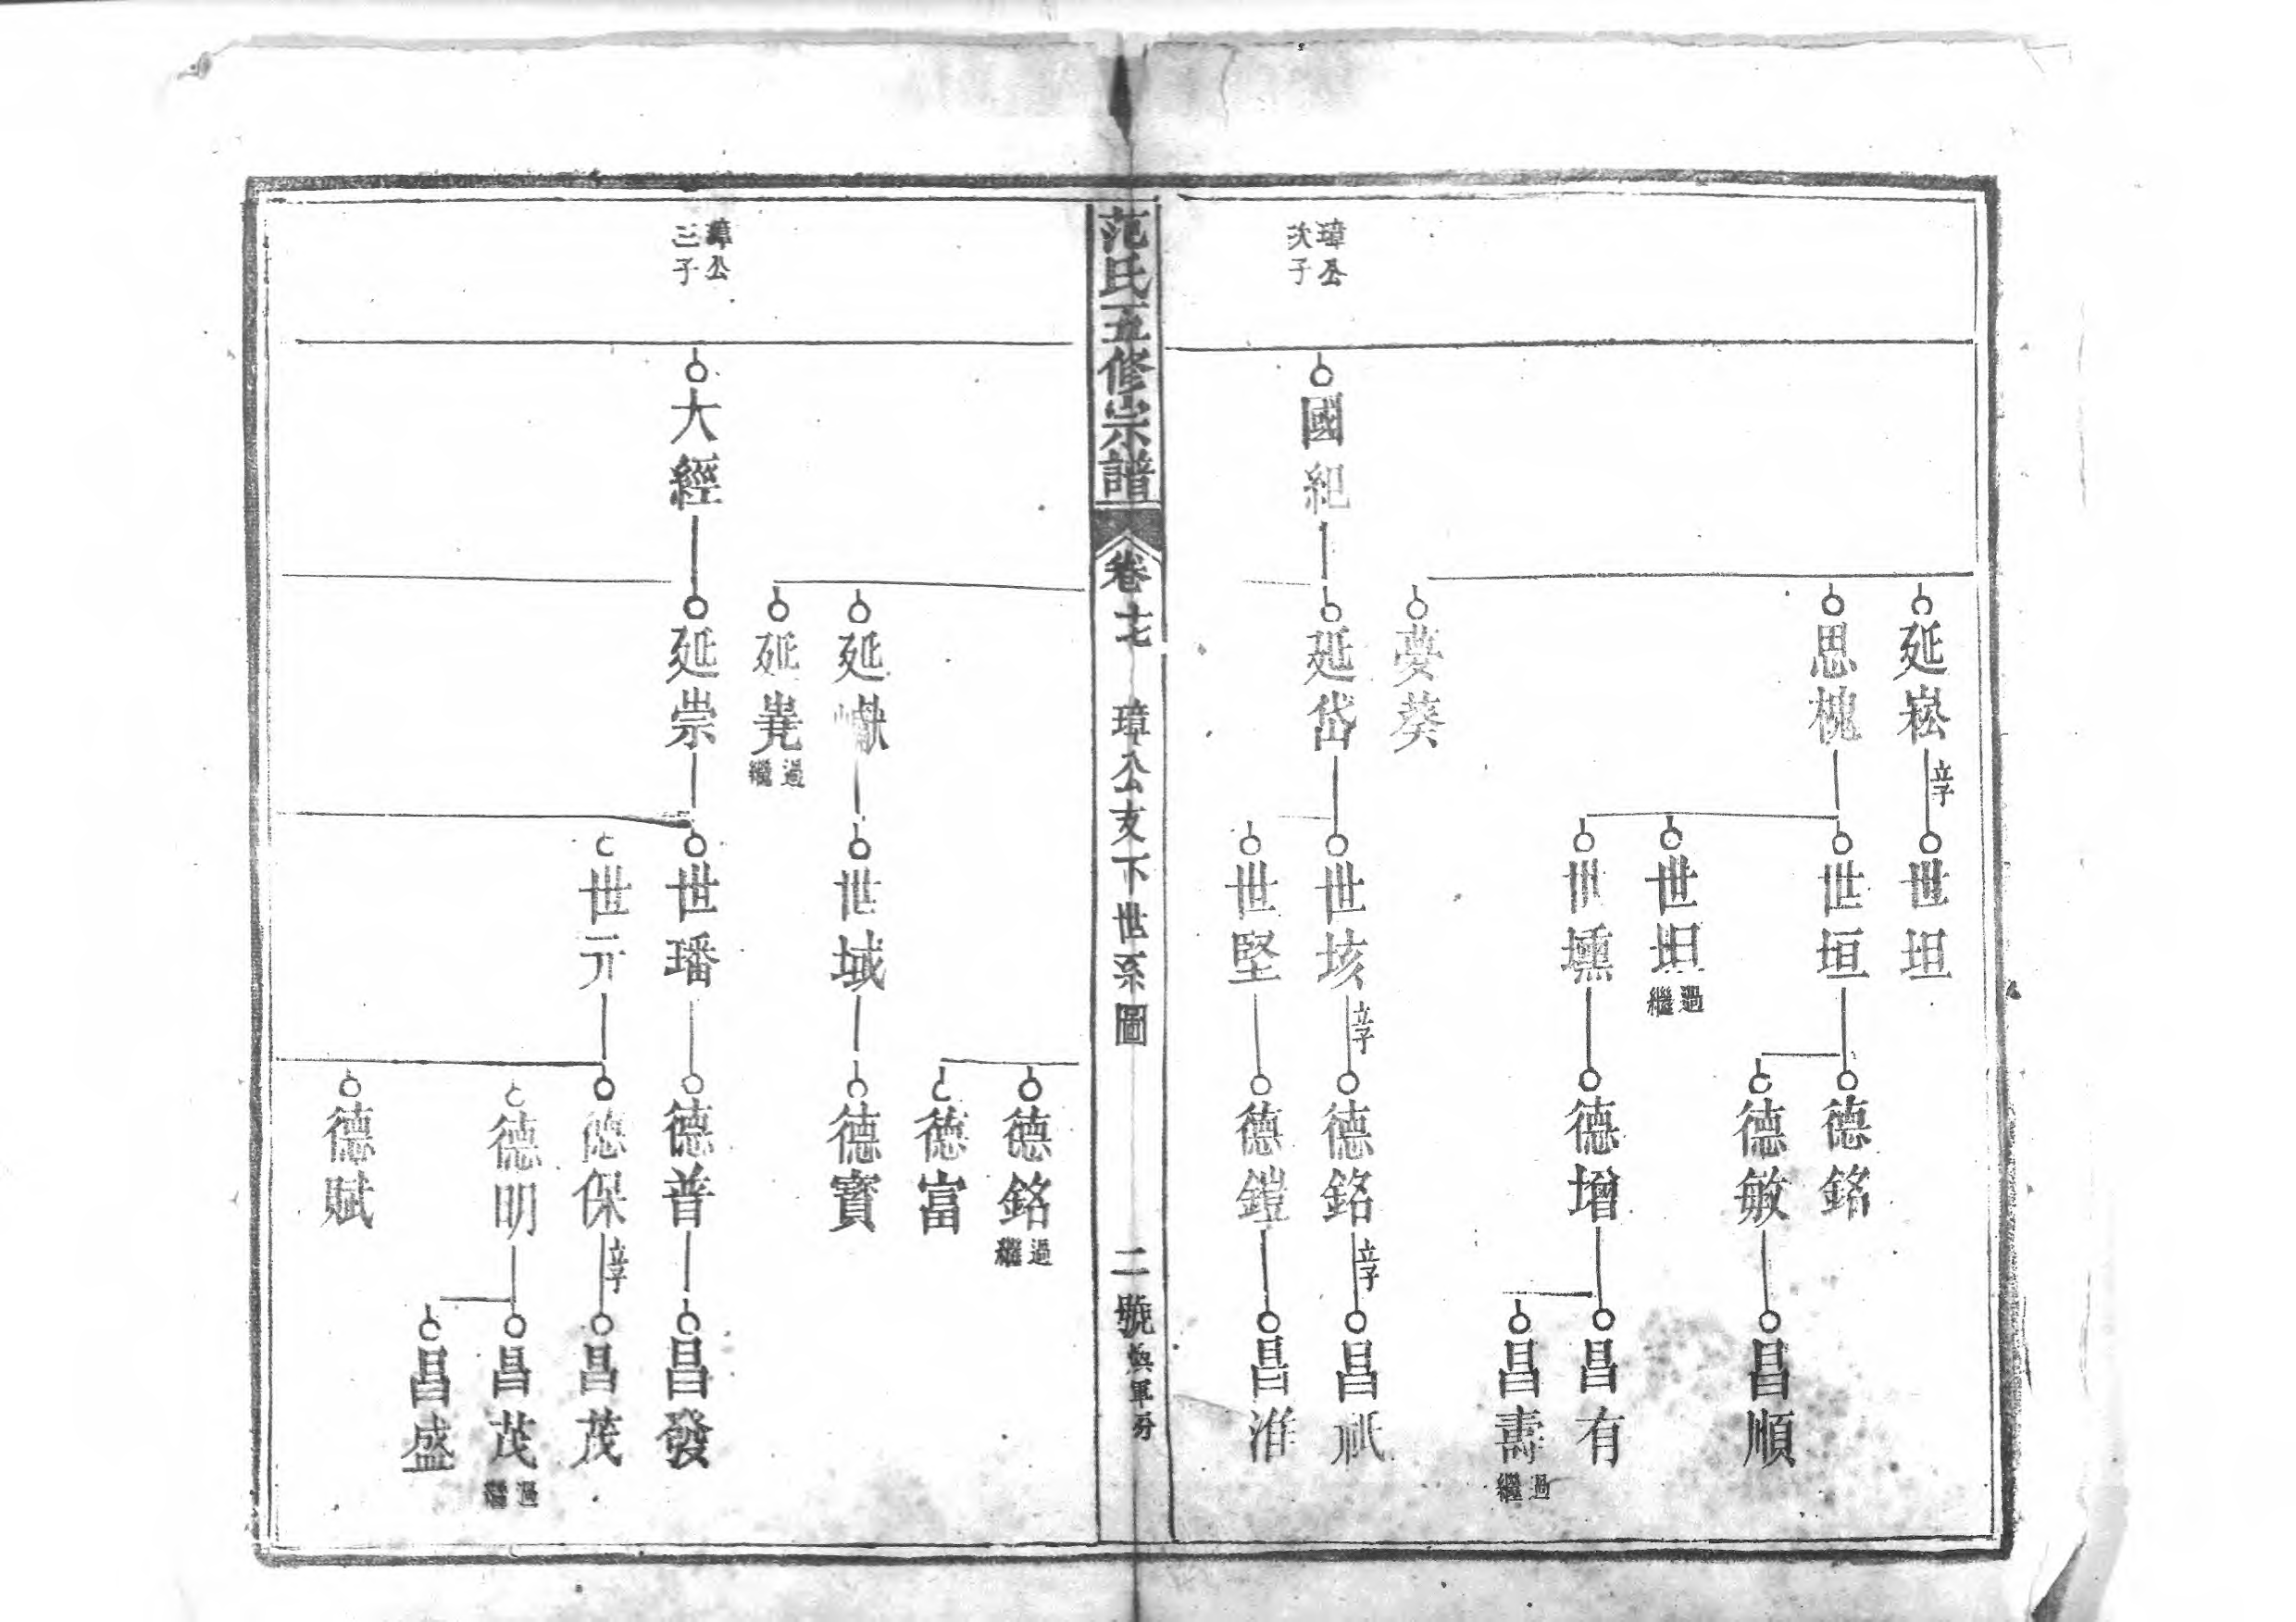 璋公次子
國紀
延崧 立子
思槐
夢葵
延岱
世坦
世垣
世坦 過繼
世壎
世垓 立子
世堅
德銘
德敏
德增
德銘 立子
德鎧
昌順
昌有
昌壽 過繼
昌祇
昌淮
范氏五修宗譜
卷七 璋公支下世系圖 二號
璋公三子
大經
延巘
延㟲 過繼
延崇
世域
世璠
世元
德銘 過繼
德富
德寶
德普
德保 立子
德明
德賦
昌發
昌茂
昌茂 過繼
昌盛